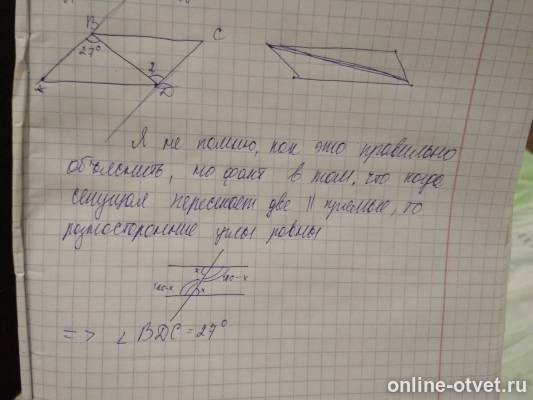 B
C
27°
2
A
D
Я не помню, как это правильно
объяснить, но факт в том, что когда
секущая пересекает две || прямые, то
разносторонние углы равны
x
180-x
180-x
x
=> ∠BDC=27°
online-otvet.ru